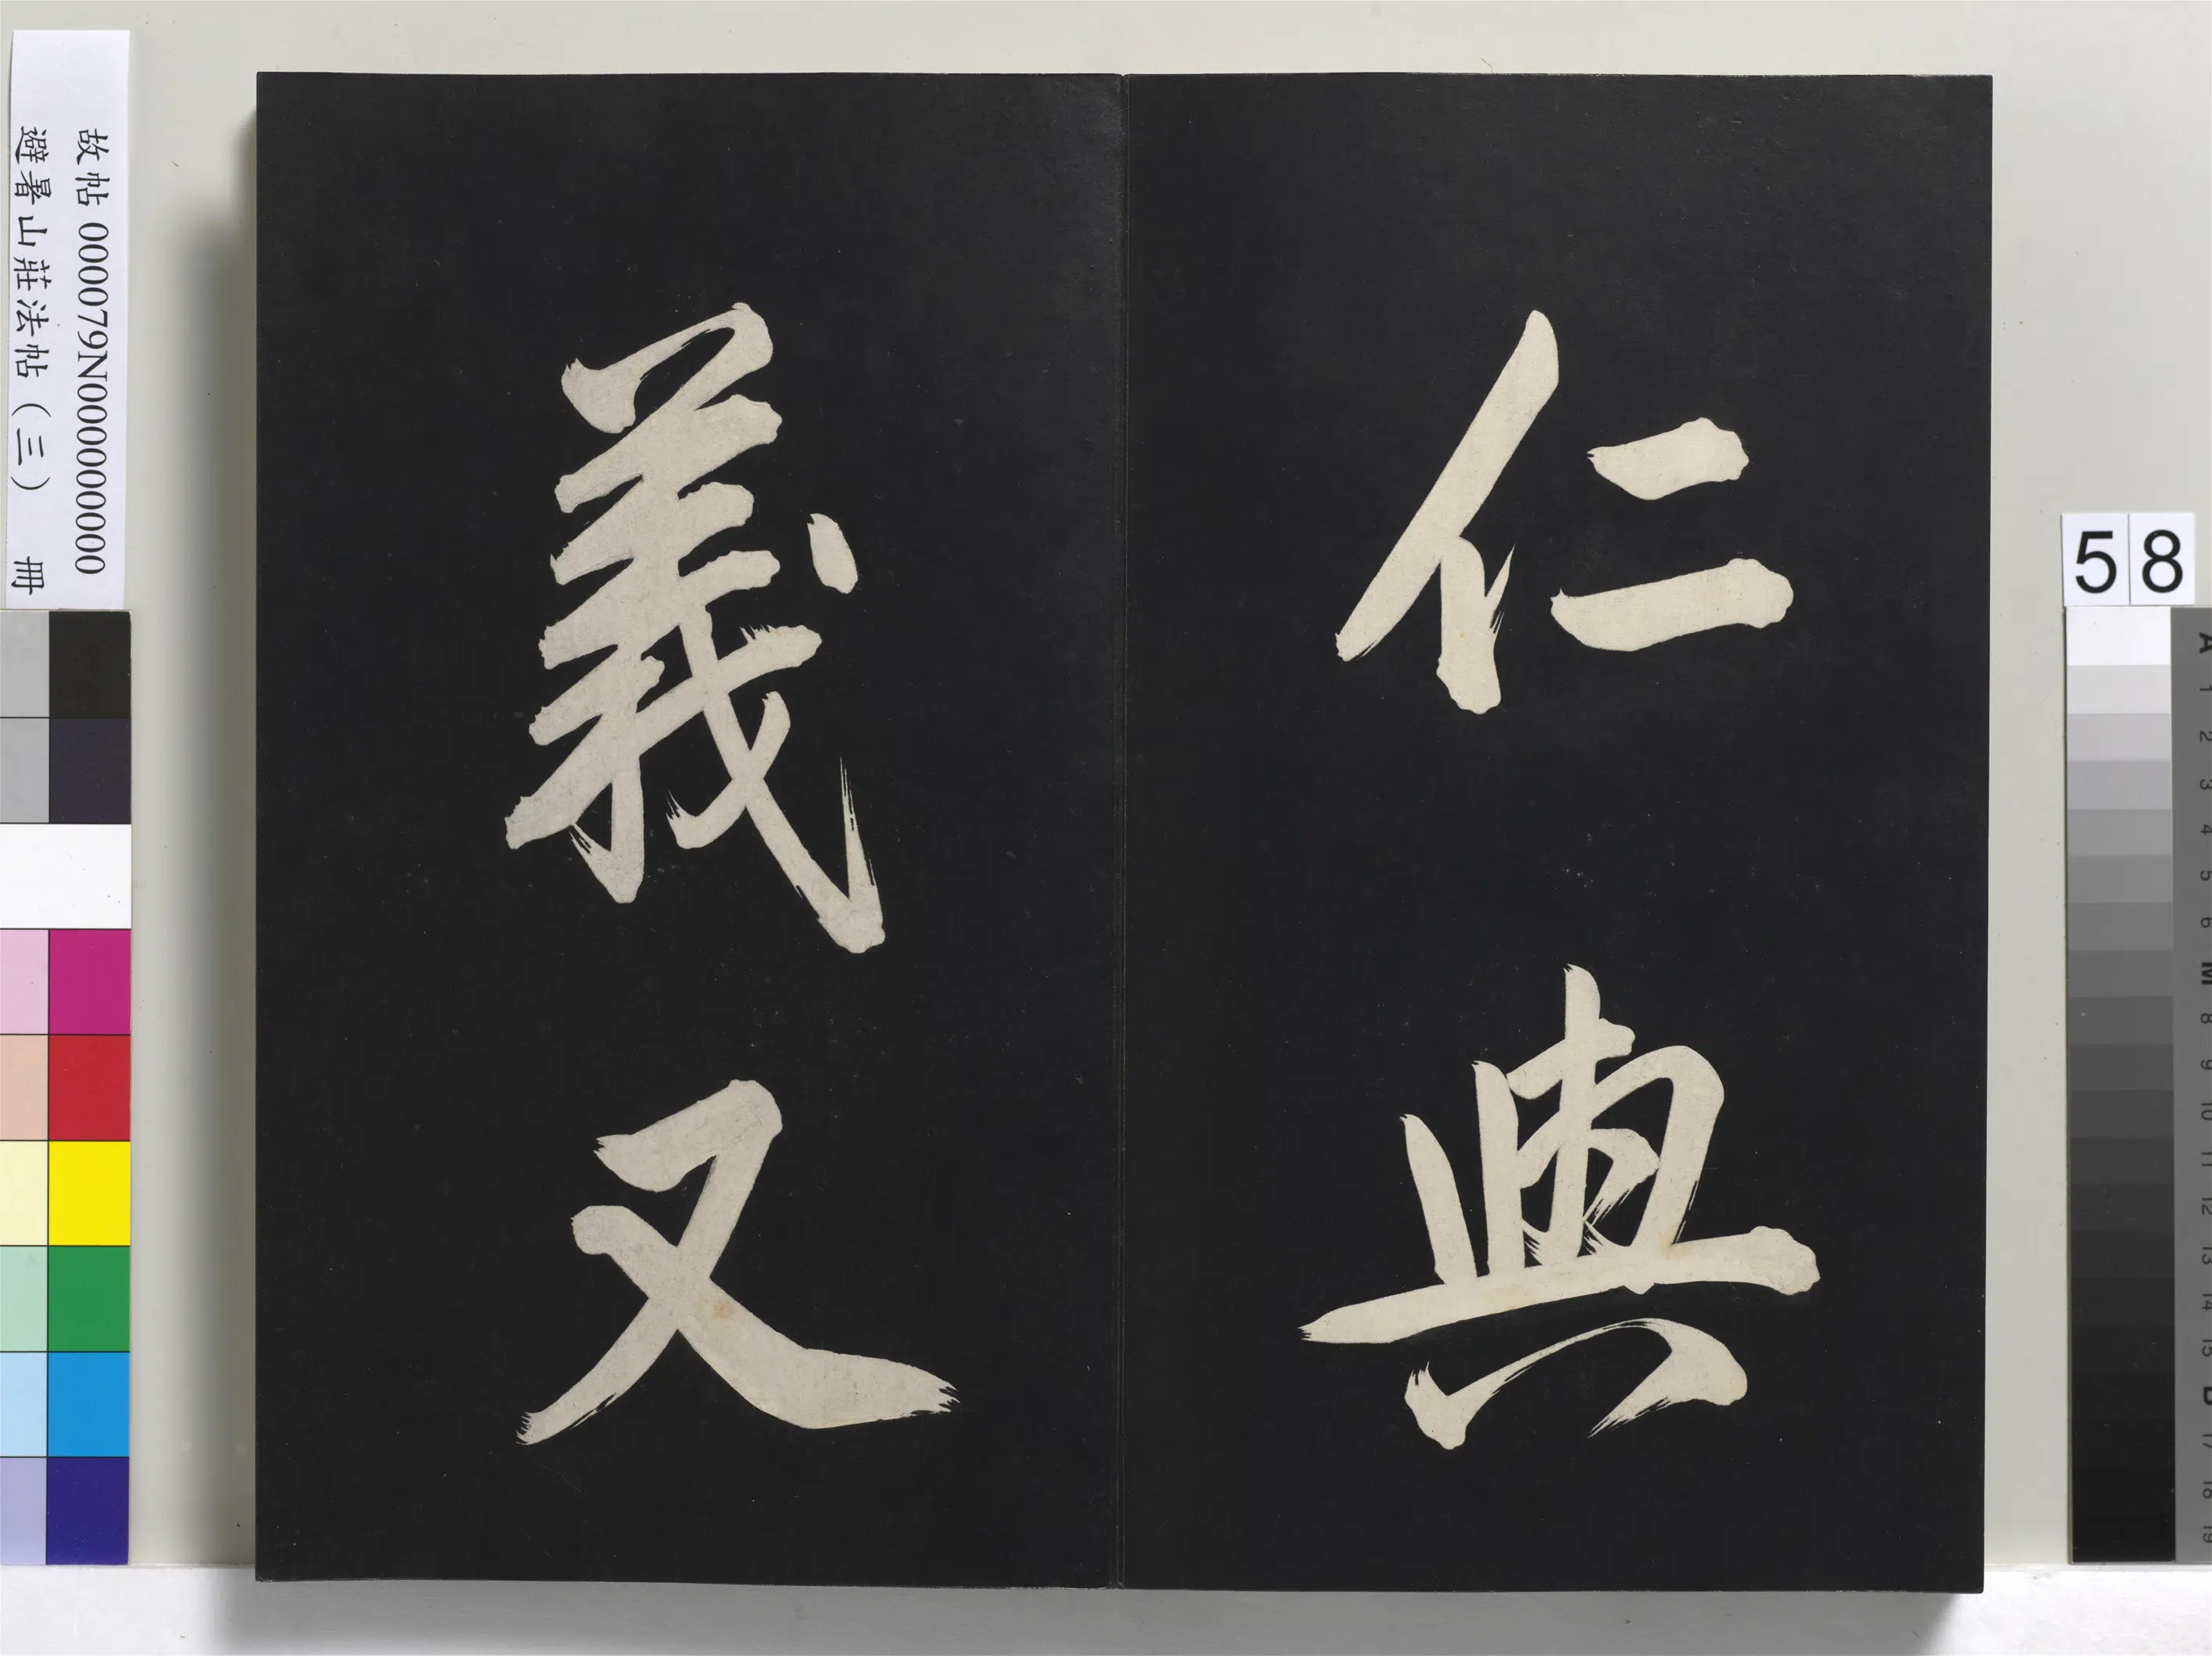 仁與
義又
故帖 000079N000000000
避暑山莊法帖(三) 冊
58
A
1
2
3
4
5
6
M
8
9
10
11
12
13
14
15
B
17
18
19